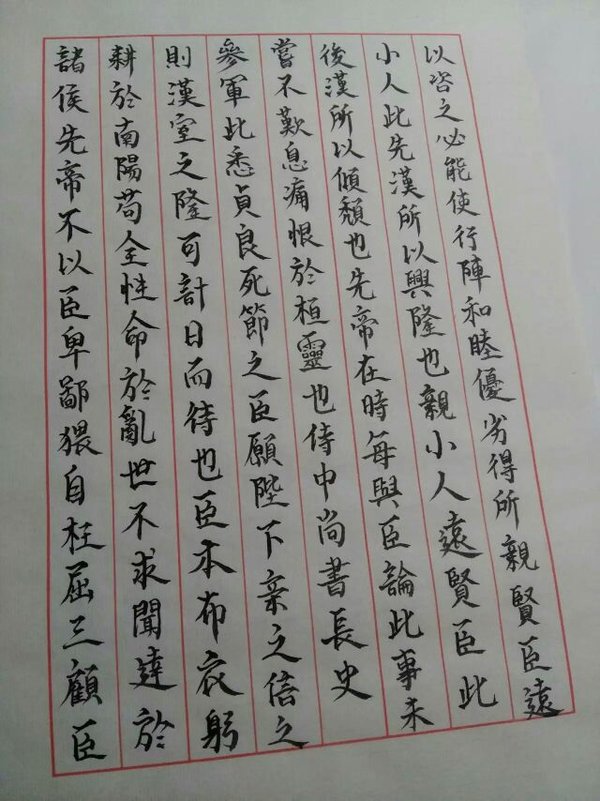 以咨之必能使行陣和睦優劣得所親賢臣遠
小人此先漢所以興隆也親小人遠賢臣此
後漢所以傾頹也先帝在時每與臣論此事未
嘗不歎息痛恨於桓靈也侍中尚書長史
參軍此悉貞良死節之臣願陛下親之信之
則漢室之隆可計日而待也臣本布衣躬
耕於南陽苟全性命於亂世不求聞達於
諸侯先帝不以臣卑鄙猥自枉屈三顧臣